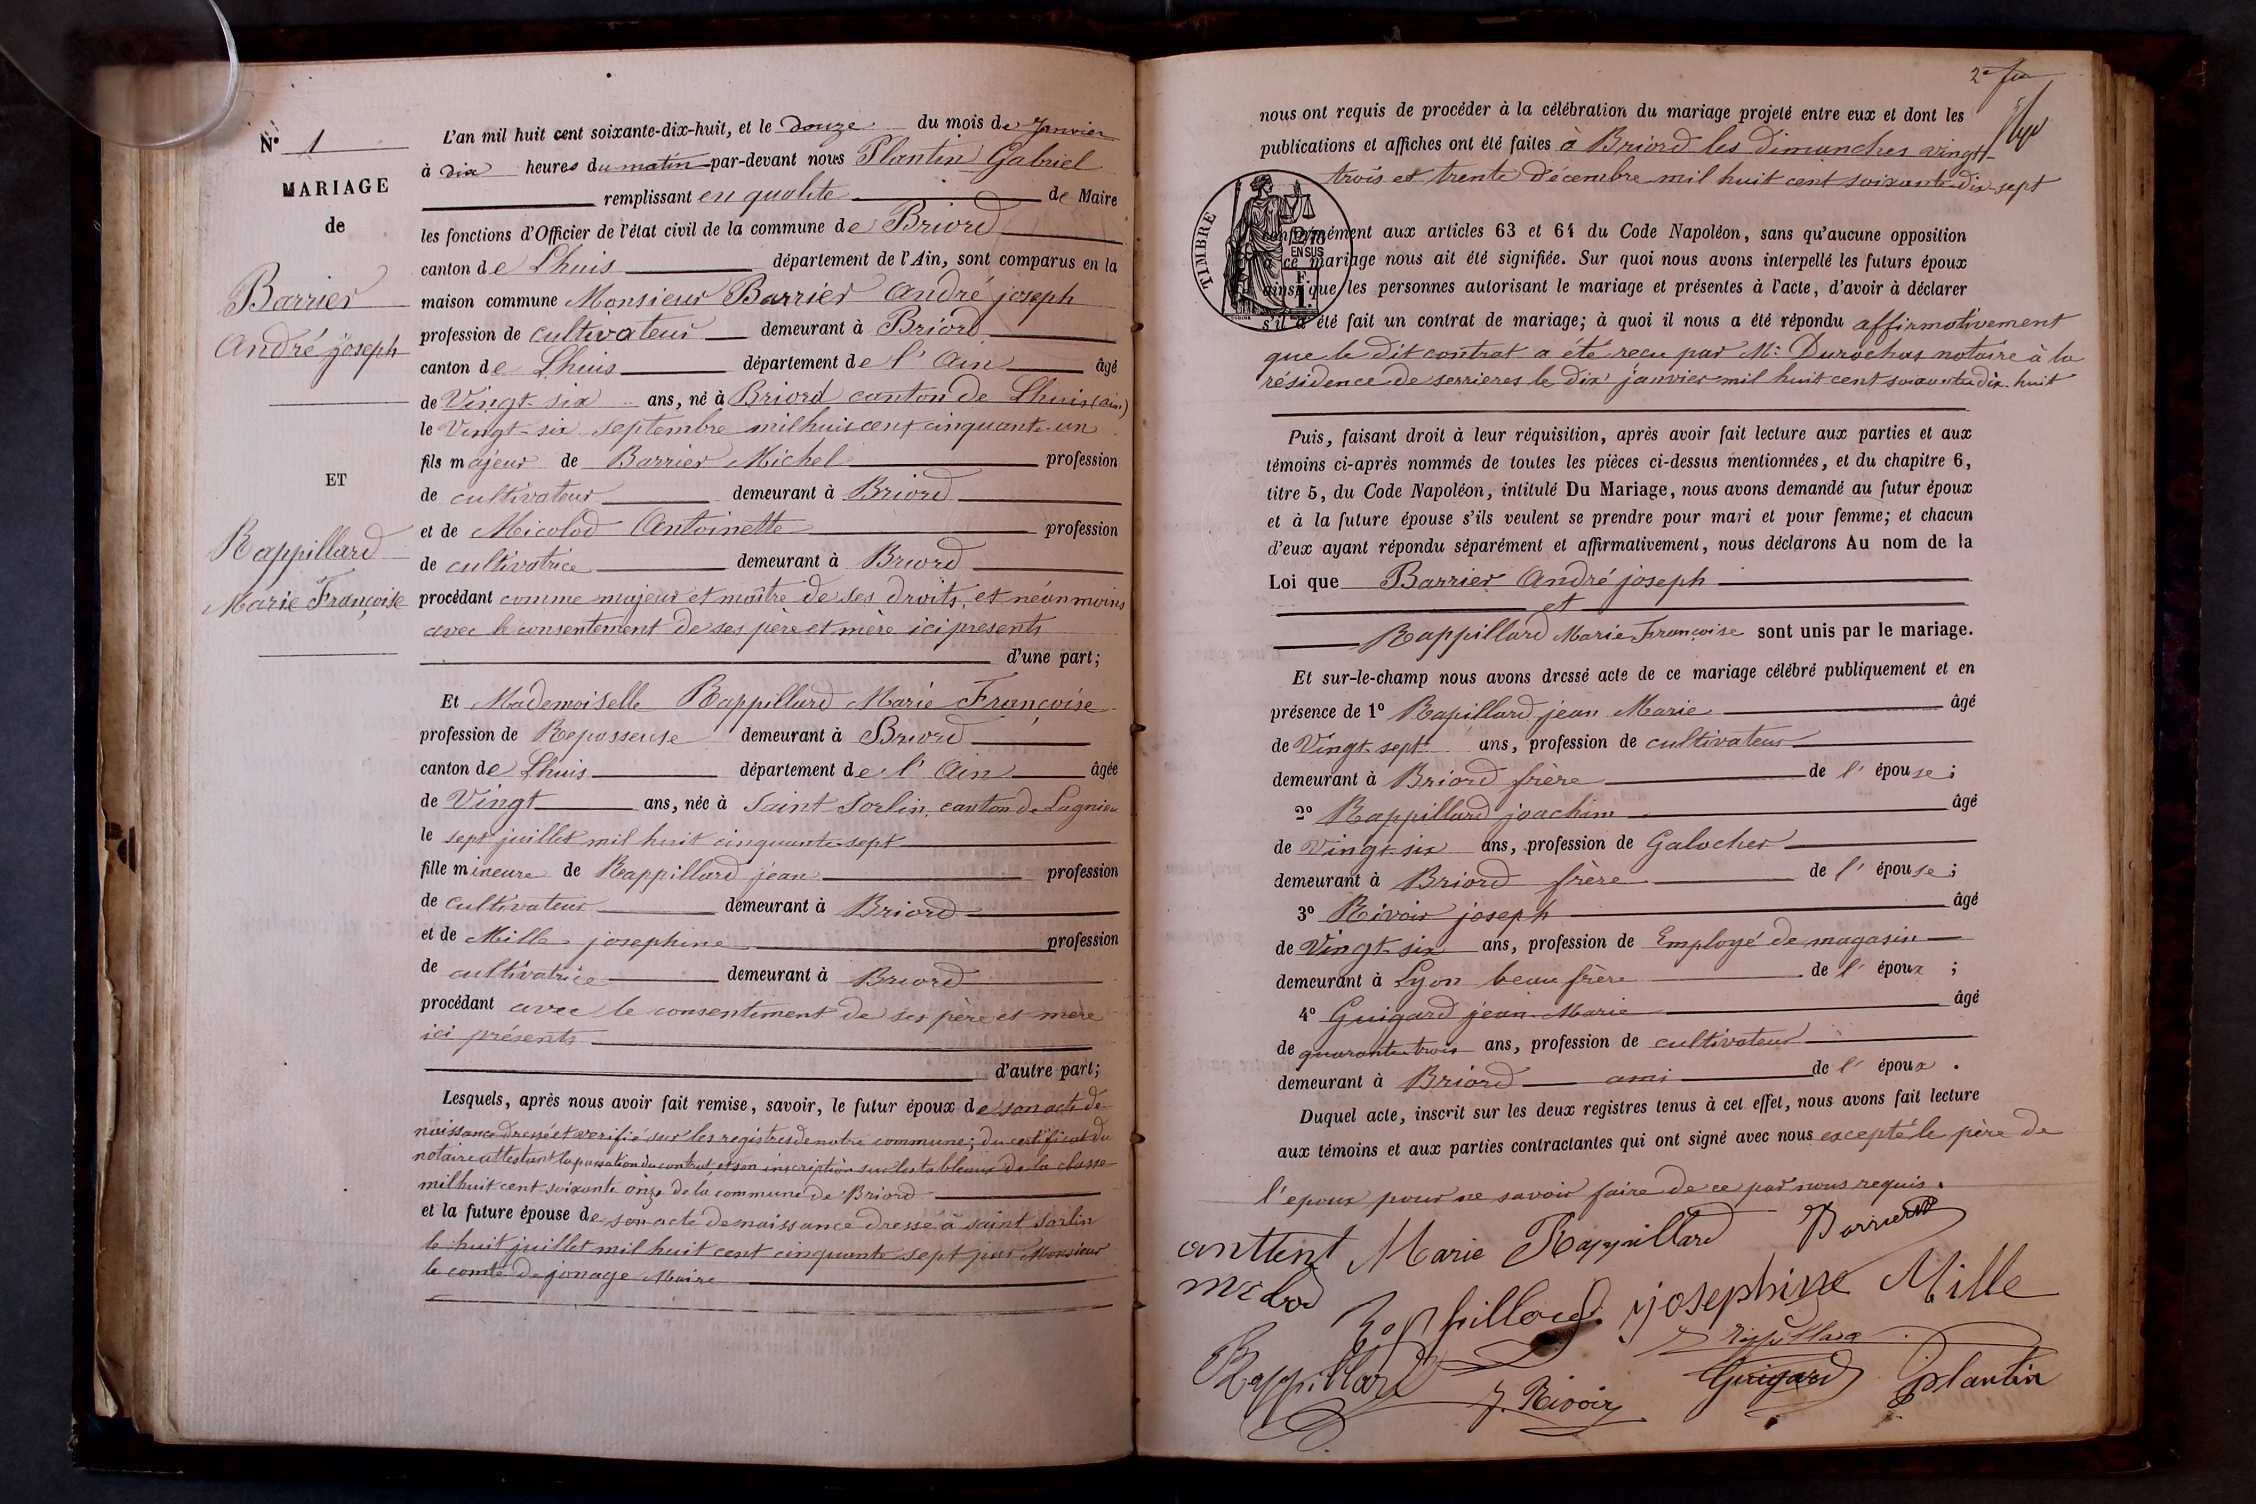 N° 1
MARIAGE
de
Barrier
André joseph
ET
Rappillard
Marie Françoise
L'an mil huit cent soixante-dix-huit, et le douze du mois de Janvier
à dix heures du matin par-devant nous Plantin Gabriel
remplissant en qualite de Maire
les fonctions d'Officier de l'état civil de la commune de Briord
canton de Lhuis département de l'Ain, sont comparus en la
maison commune Monsieur Barrier André joseph
profession de cultivateur demeurant à Briord
canton de Lhuis département de l'Ain âgé
de Vingt-six ans, né à Briord canton de Lhuis (ain)
le Vingt-six septembre mil huit cent cinquante-un
fils majeur de Barrier Michel profession
de cultivateur demeurant à Briord
et de Micolod Antoinette profession
de cultivatrice demeurant à Briord
procédant comme majeur et maître de ses droits, et néanmoins
avec le consentement de ses père et mère ici présents
d'une part;
Et Mademoiselle Rappillard Marie Françoise
profession de Repasseuse demeurant à Briord
canton de Lhuis département de l'Ain âgée
de Vingt ans, née à Saint Sorlin, canton de Lagnieu
le sept juillet mil huit cinquante-sept
fille mineure de Rappillard jean profession
de cultivateur demeurant à Briord
et de Mille josephine profession
de cultivatrice demeurant à Briord
procédant avec le consentement de ses père et mère
ici présents
d'autre part;
Lesquels, après nous avoir fait remise, savoir, le futur époux de son acte de
naissance dressé et verifié sur les registres de notre commune; du certificat du
notaire attestant la passation du contrat, et son inscription sur les tableaux de la classe
mil huit cent soixante onze de la commune de Briord
et la future épouse de son acte de naissance dressé à saint Sorlin
le huit juillet mil huit cent cinquante sept par Monsieur
le comte de jonage Maire
2e
nous ont requis de procéder à la célébration du mariage projeté entre eux et dont les
publications et affiches ont été faites à Briord les dimanches vingt-
trois et trente décembre mil huit cent soixante-dix-sept
TIMBRE
2/10
EN SUS
F.
1.
conformément aux articles 63 et 64 du Code Napoléon, sans qu'aucune opposition
à ce mariage nous ait été signifiée. Sur quoi nous avons interpellé les futurs époux
ainsi que les personnes autorisant le mariage et présentes à l'acte, d'avoir à déclarer
s'il a été fait un contrat de mariage; à quoi il nous a été répondu affirmativement
que le dit contrat a été recu par Me Durochas notaire à la
résidence de serrieres le dix janvier mil huit cent soixante dix-huit
Puis, faisant droit à leur réquisition, après avoir fait lecture aux parties et aux
témoins ci-après nommés de toutes les pièces ci-dessus mentionnées, et du chapitre 6,
titre 5, du Code Napoléon, intitulé Du Mariage, nous avons demandé au futur époux
et à la future épouse s'ils veulent se prendre pour mari et pour femme; et chacun
d'eux ayant répondu séparément et affirmativement, nous déclarons Au nom de la
Loi que Barrier André joseph
et
Rappillard Marie Françoise sont unis par le mariage.
Et sur-le-champ nous avons dressé acte de ce mariage célébré publiquement et en
présence de 1° Rapillard jean Marie âgé
de Vingt-sept ans, profession de cultivateur
demeurant à Briord frère de l'épouse;
2° Rappillard joachim âgé
de Vingt-six ans, profession de Galocher
demeurant à Briord frère de l'épouse;
3° Rivoir joseph âgé
de Vingt-six ans, profession de Employé de magasin
demeurant à Lyon beau frère de l'époux ;
4° Guigard jean-Marie âgé
de quarante-trois ans, profession de cultivateur
demeurant à Briord ami de l'époux .
Duquel acte, inscrit sur les deux registres tenus à cet effet, nous avons fait lecture
aux témoins et aux parties contractantes qui ont signé avec nous excepté le père de
l'epoux pour ne savoir faire de ce par nous requis.
Marie Rappillard Barrier
josephine Mille
Rappillard
Rappillard
J. Rivoir Guigard Plantin